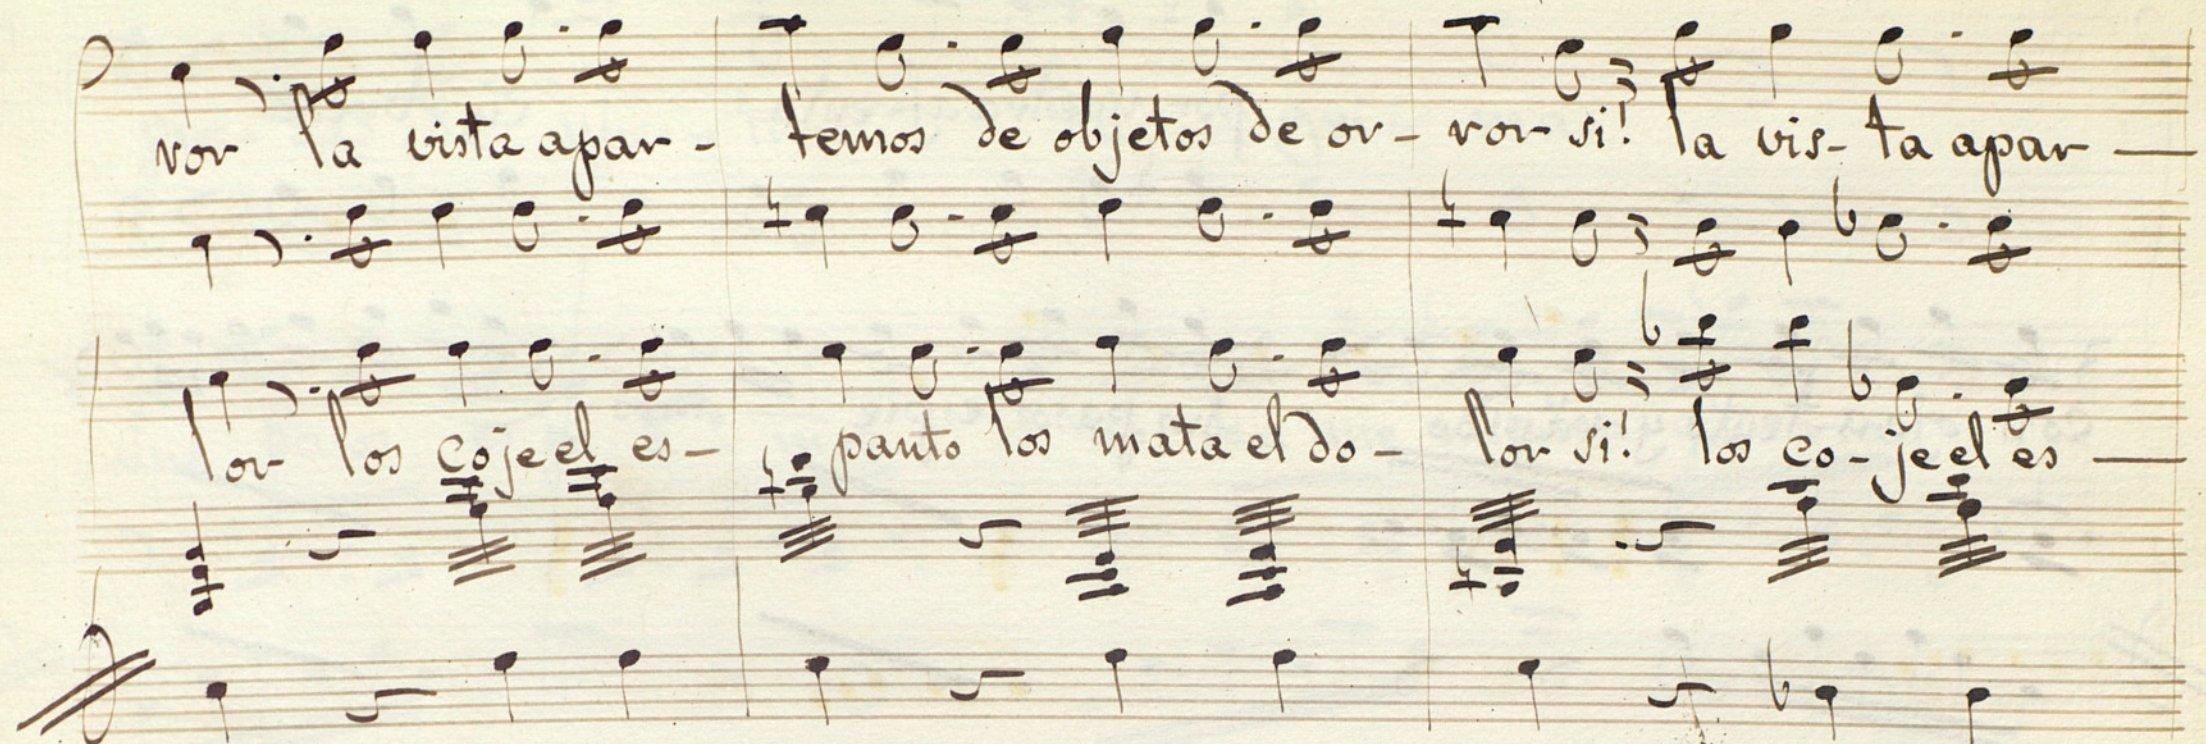 vor la vista apar- temos de objetos de or- ror si! la vis- ta apar-
lor los coje el es- panto los mata el do- lor si! los co- je el es-